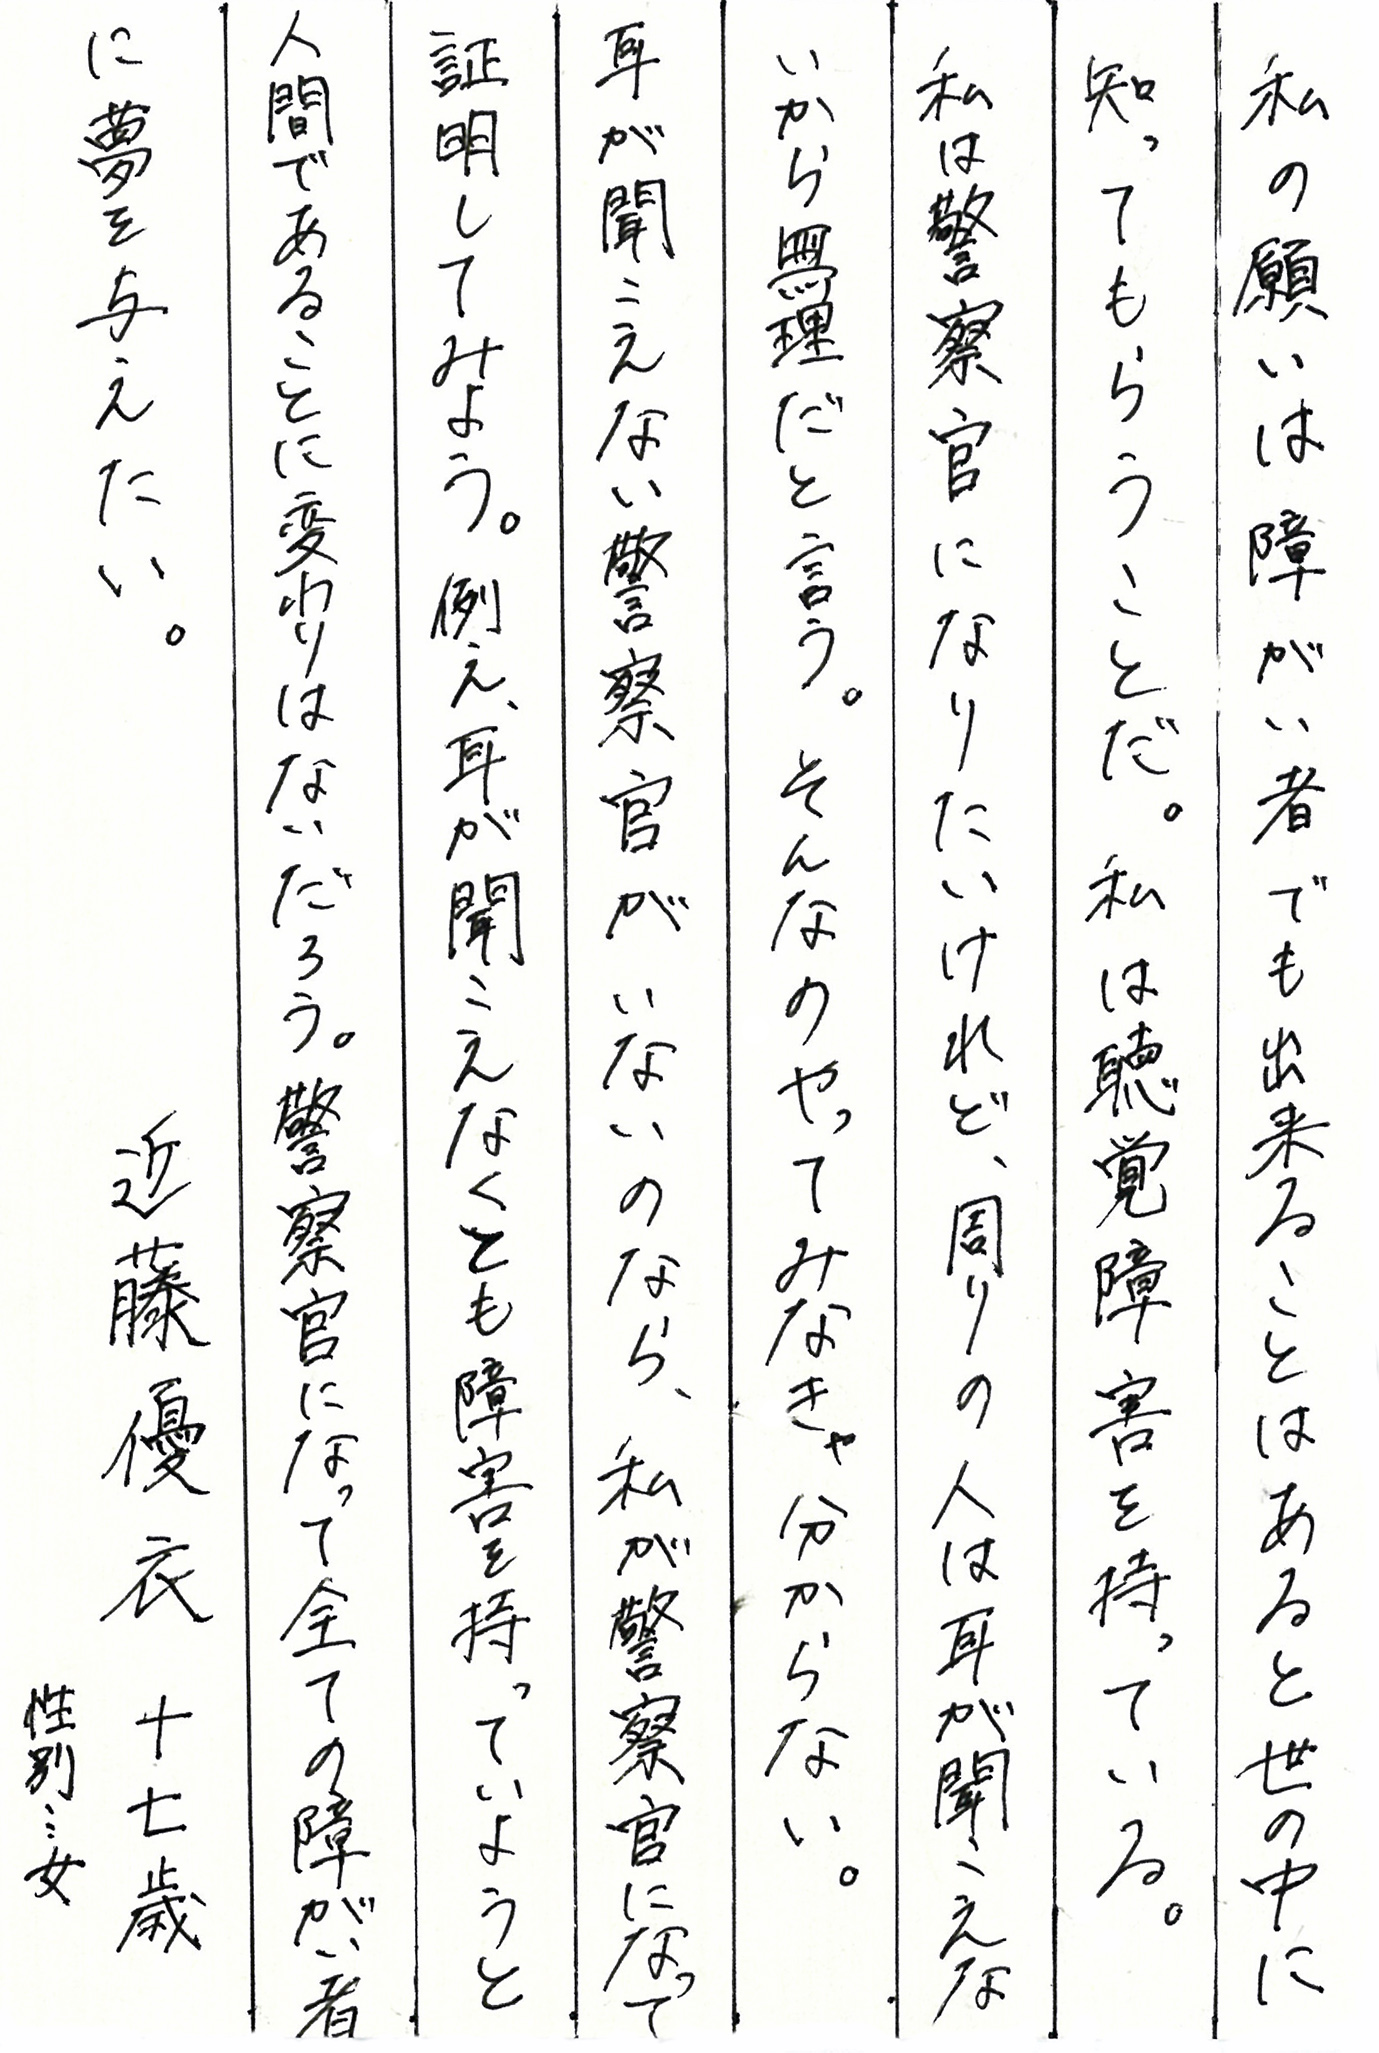 私の願いは障がい者でも出来ることはあると世の中に
知ってもらうことだ。私は聴覚障害を持っている。
私は警察官になりたいけれど、周りの人は耳が聞こえな
いから無理だと言う。そんなのやってみなきゃ分からない。
耳が聞こえない警察官がいないのなら、私が警察官になって
証明してみよう。例え、耳が聞こえなくとも障害を持っていようと
人間であることに変わりはないだろう。警察官になって全ての障がい者
に夢を与えたい。
近藤優衣 十七歳
性別…女